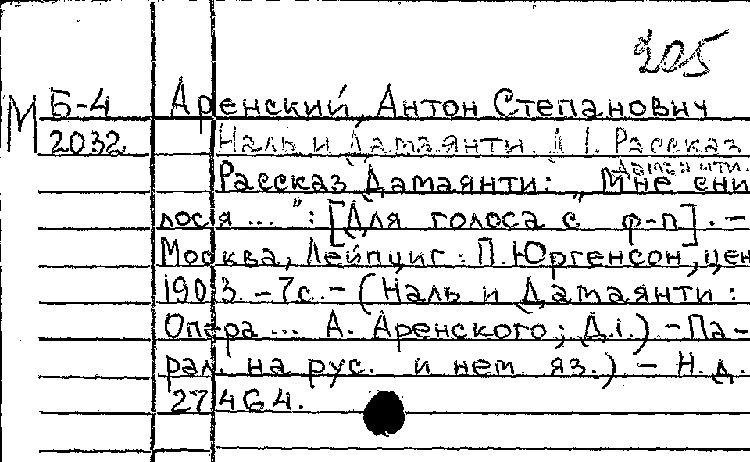 205
М Б-4 Аренский, Антон Степанович
2032 Наль и Дамаянти. Д I. Рассказ
Дамаянти.
Рассказ Дамаянти: „Мне сни-
лося...": [Для голоса с ф-п]. –
Москва, Лейпциг: П. Юргенсон, цен
1903. – 7с. – (Наль и Дамаянти:
Опера... А. Аренского; Д.i.) – Па-
рал. на рус. и нем яз.) – Н.д.
27464.